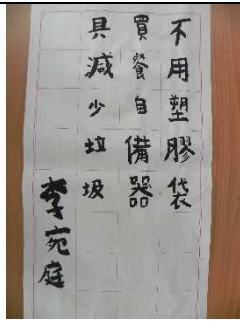 不用塑膠袋
買餐自備器
具減少垃圾
李宛庭